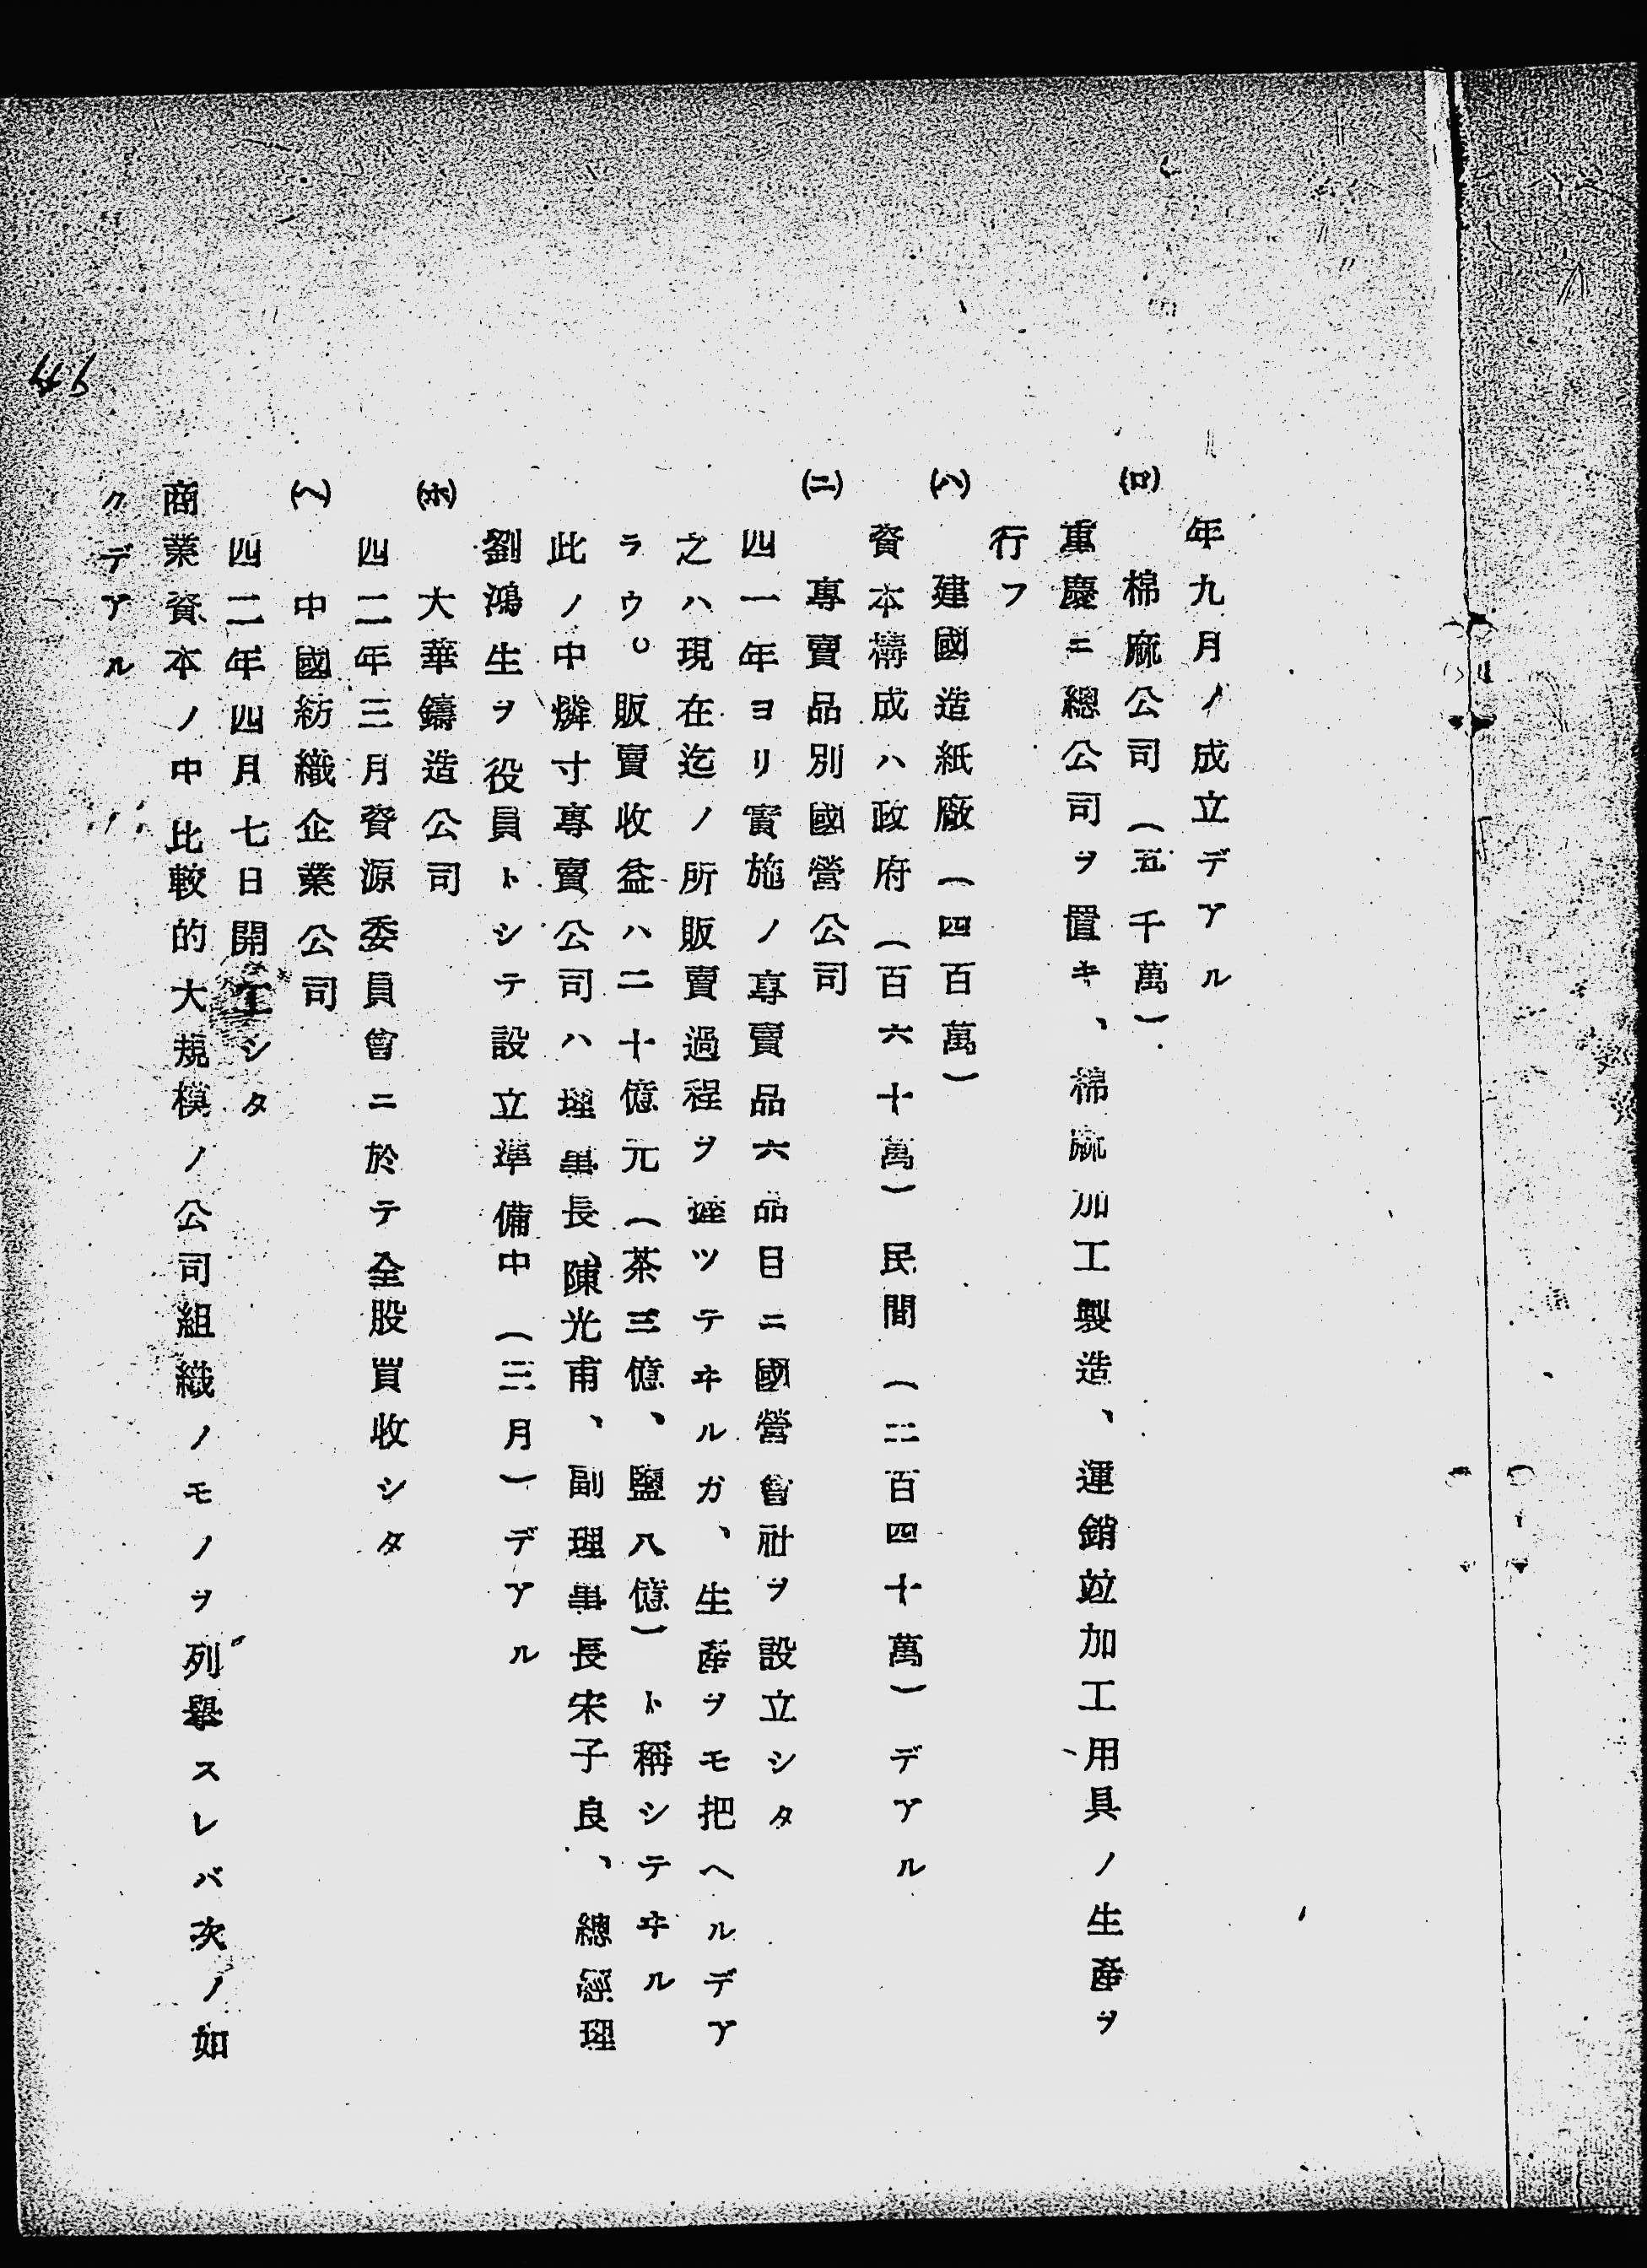 年九月ノ成立デアル
(ロ) 棉麻公司(五千萬)
重慶ニ總公司ヲ置キ、棉麻加工製造、運銷竝加工用具ノ生產ヲ
行フ
(ハ) 建國造紙廠(四百萬)
資本構成ハ政府(百六十萬)民間(二百四十萬)デアル
(ニ) 專賣品別國營公司
四一年ヨリ實施ノ專賣品六品目ニ國營會社ヲ設立シタ
之ハ現在迄ノ所販賣過程ヲ握ツテヰルガ、生產ヲモ把ヘルデア
ラウ。販賣收益ハ二十億元(茶三億、鹽八億)ト稱シテヰル
此ノ中燐寸專賣公司ハ理事長陳光甫、副理事長宋子良、總經理
劉鴻生ヲ役員トシテ設立準備中(三月)デアル
(ホ) 大華鑄造公司
四二年三月資源委員會ニ於テ全股買收シタ
(ヘ) 中國紡織企業公司
四二年四月七日開工シタ
商業資本ノ中比較的大規模ノ公司組織ノモノヲ列擧スレバ次ノ如
クデアル